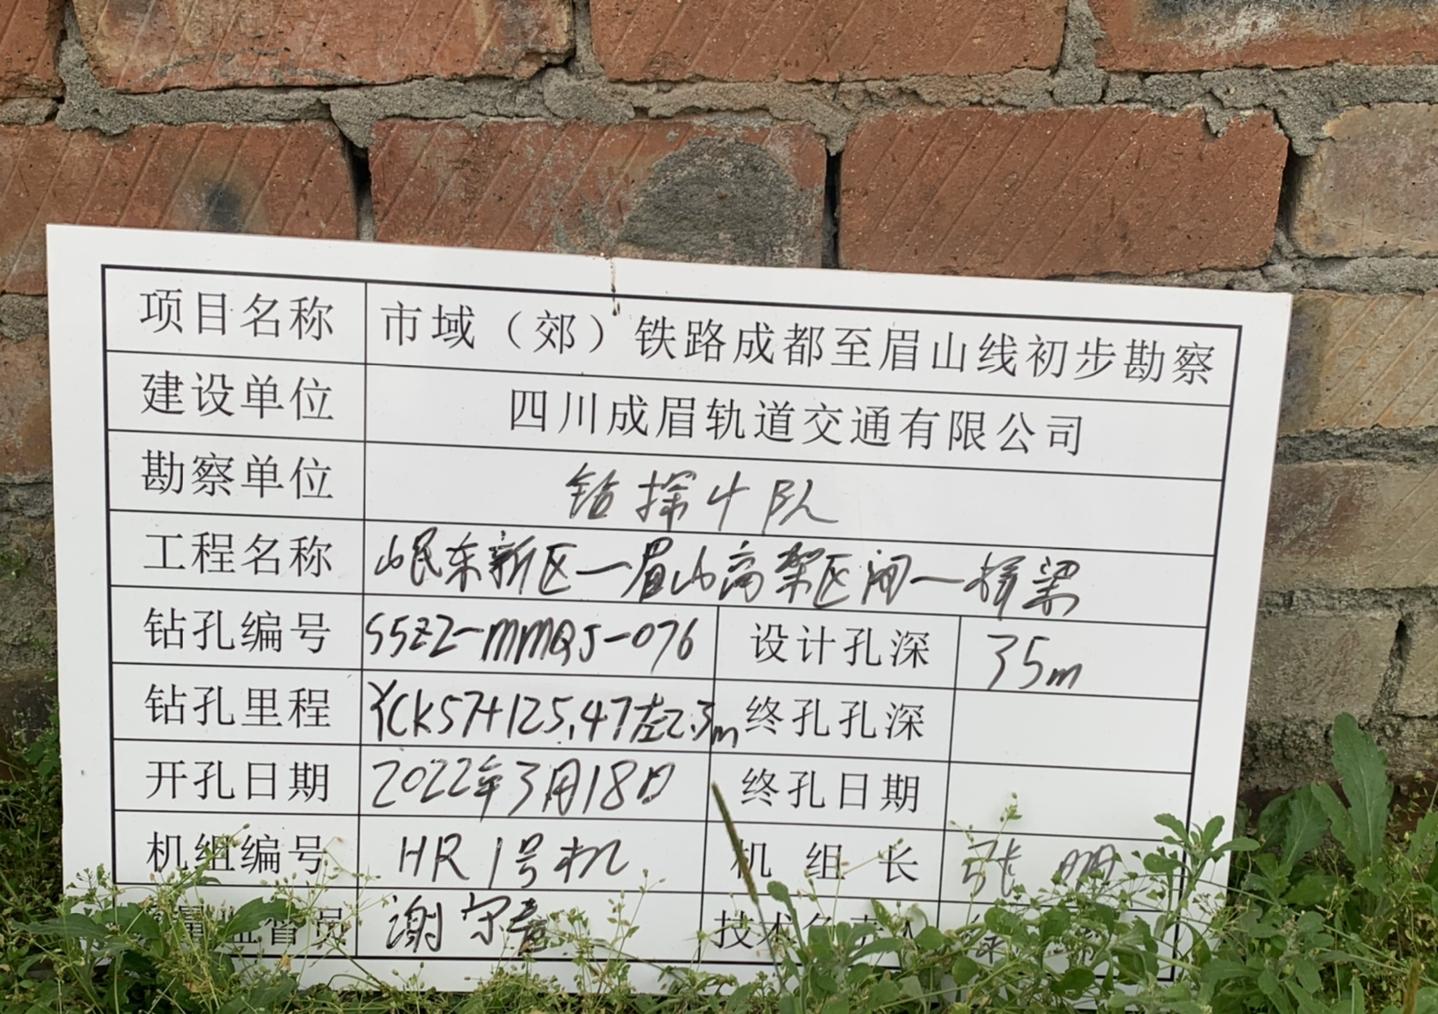 项目名称 市域（郊）铁路成都至眉山线初步勘察
建设单位 四川成眉轨道交通有限公司
勘察单位 钻探十队
工程名称 岷东新区一眉山高架区间一桥梁
钻孔编号 SSZ2-MMQJ-076 设计孔深 35m
钻孔里程 YCK57+125.47左2.3m 终孔孔深
开孔日期 2022年3月18日 终孔日期
机组编号 HR1号机 机组长 张明
监督员 谢守 技术负责人